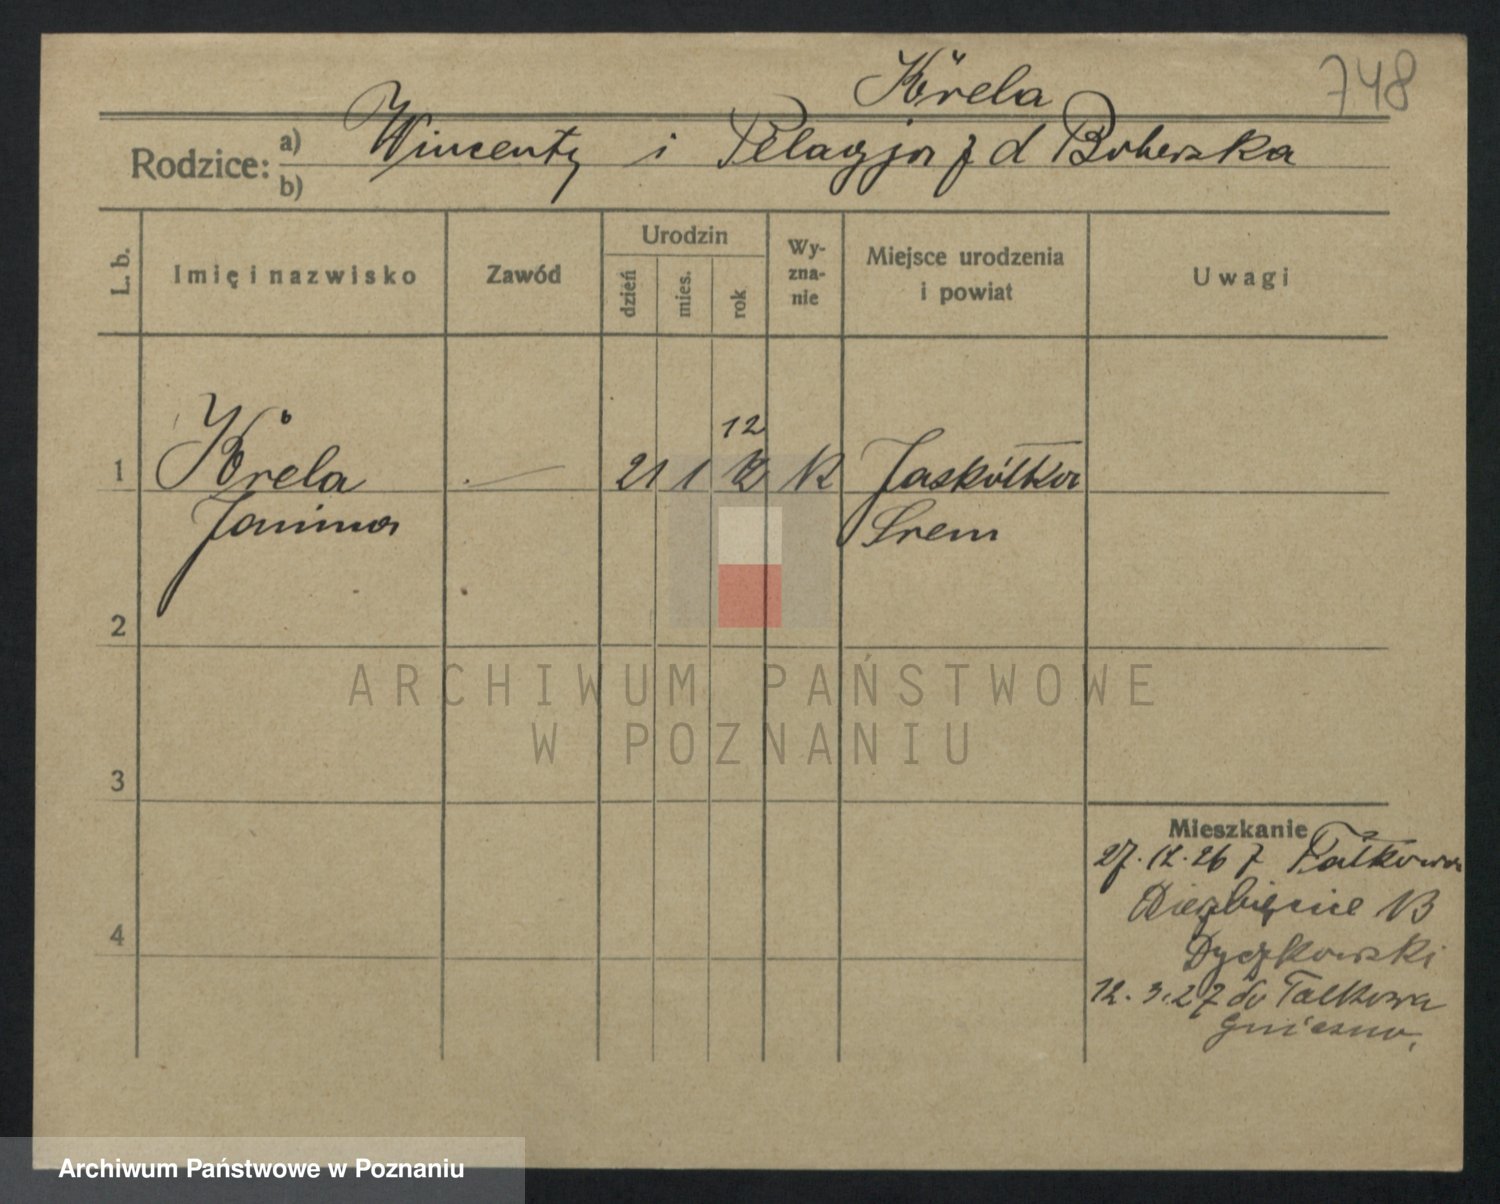 748
Körela
Rodzice: a) b) Wincenty i Pelagja z d Boberska
L. b.
Imię i nazwisko
Zawód
Urodzin
dzień
mies.
rok
Wy-
zna-
nie
Miejsce urodzenia
i powiat
Uwagi
12
1 Körela 21 1 K Jaskółka
Janina Śrem
2
3
4
ARCHIWUM PAŃSTWOWE
W POZNANIU
Mieszkanie
27.12.26 z Fałkowa
13
Dyczkowski
12.3.27 do Fałkowa
Gniezno.
Archiwum Państwowe w Poznaniu